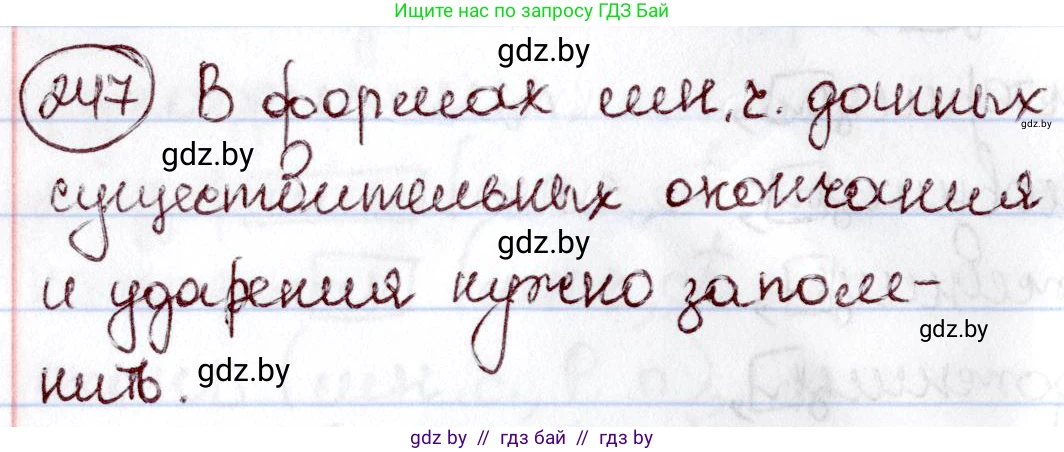 Ищите нас по запросу ГДЗ Бай
gdz.by
247 В формах мн.ч. данных
gdz.by
gdz.by
существительных окончания
gdz.by
и ударения нужно запом-
gdz.by
gdz.by
нить.
gdz.by // гдз бай // гдз by